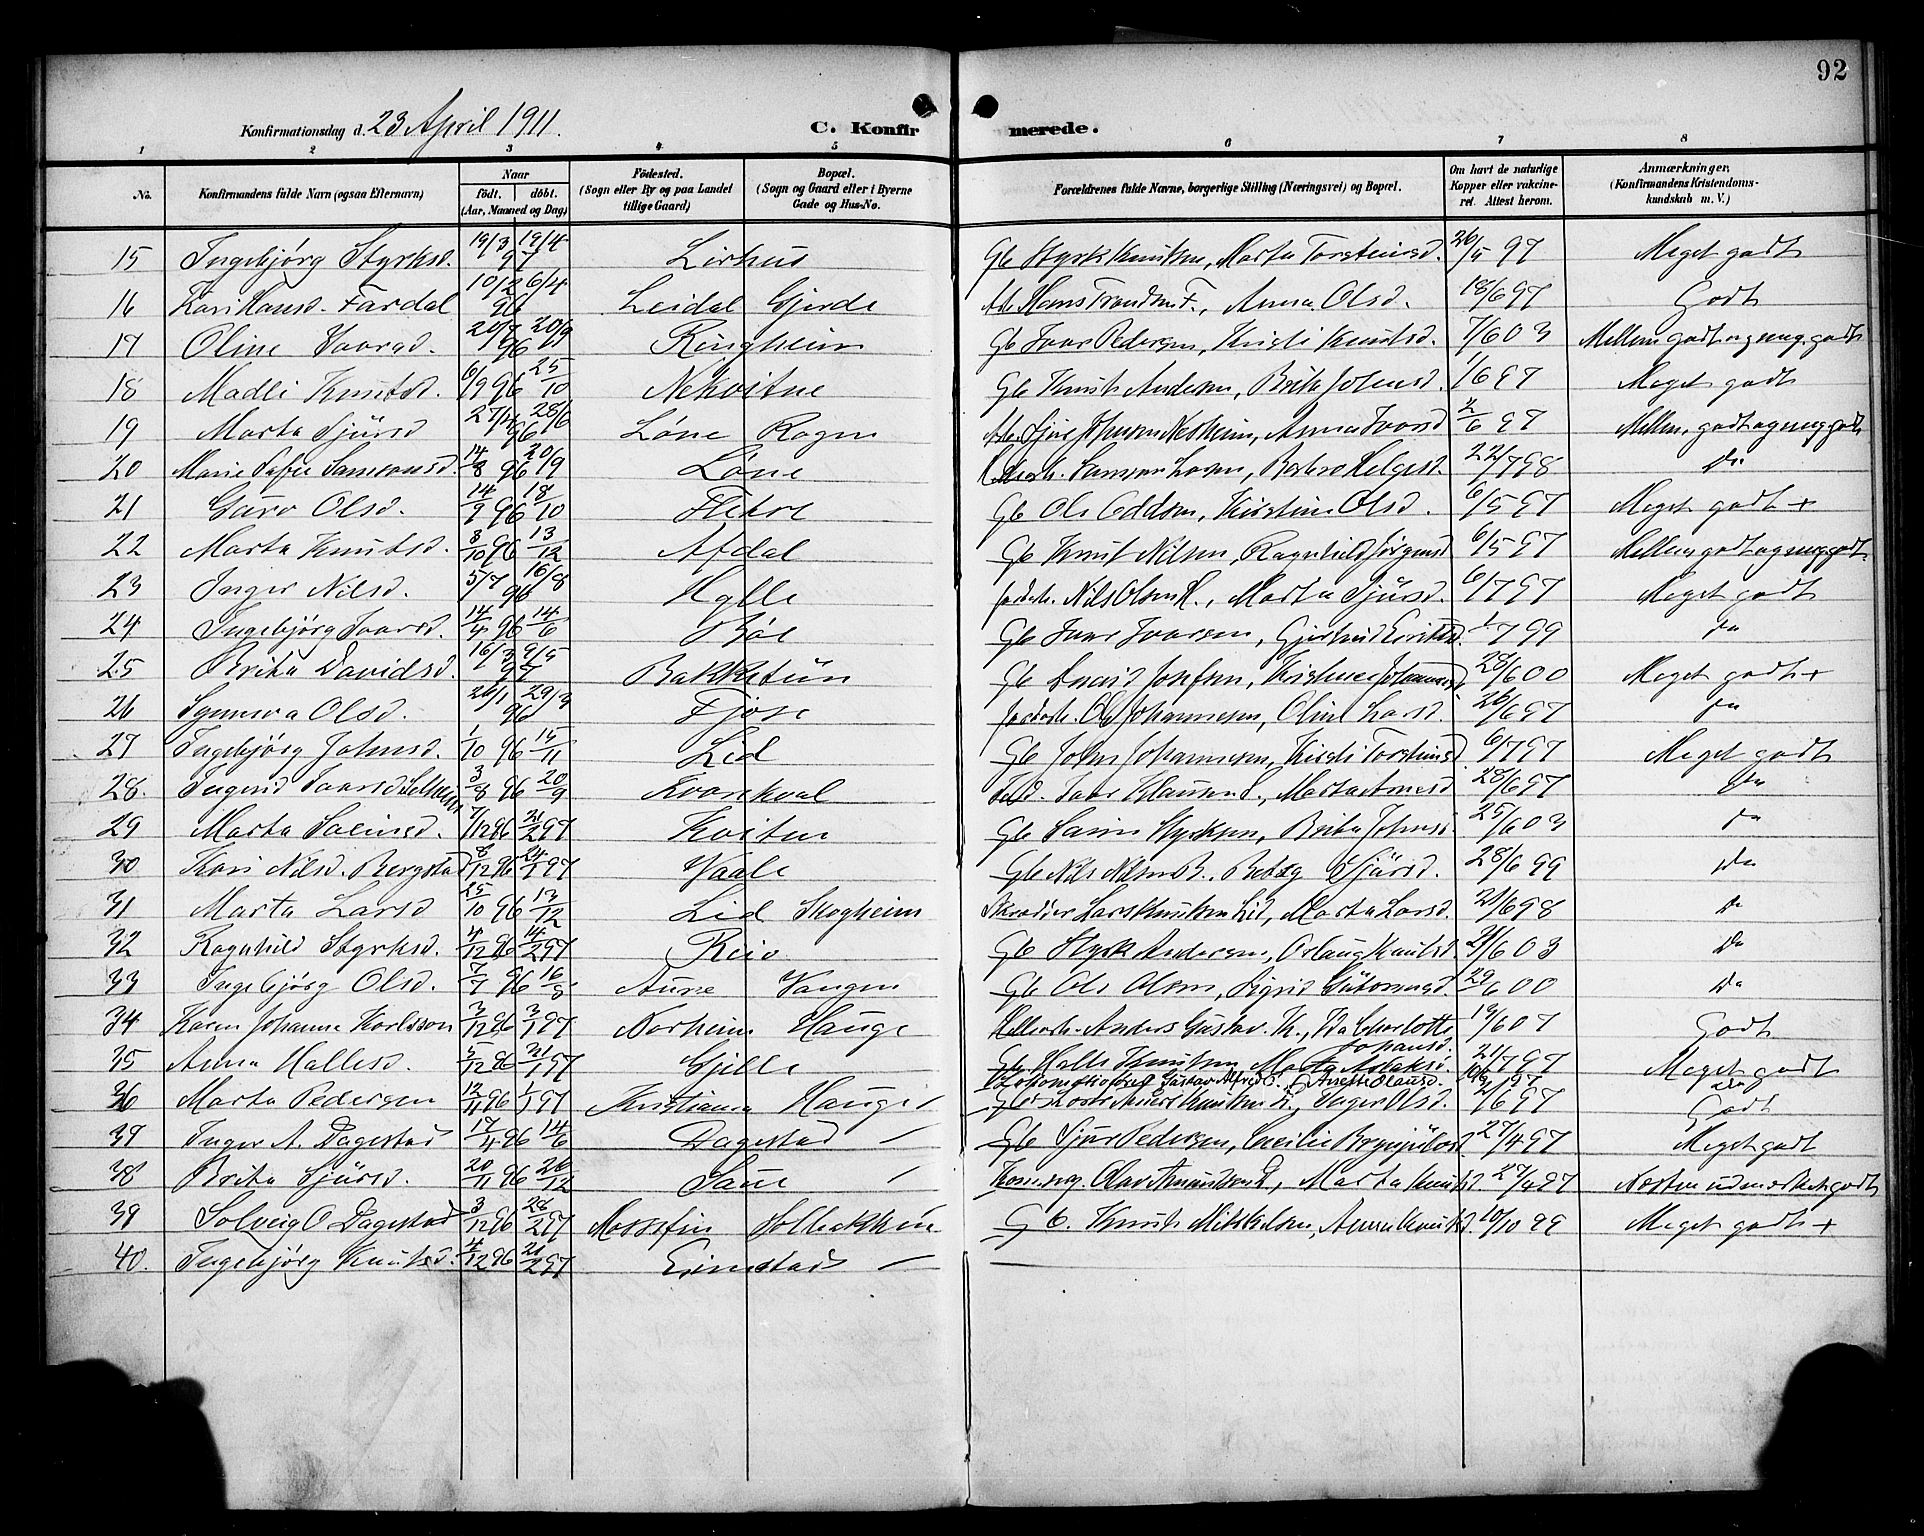 92
Konfirmationsdag d. 23 April 1911. C. Konfir merede.
1 2 3 4 5 6 7 8
No. Konfirmandens fulde Navn (ogsaa Efternavn) Naar født. døbt. (Aar, Maaned og Dag) Fødested. (Sogn eller By og paa Landet tillige Gaard) Bopæl. (Sogn og Gaard eller i Byerne Gade og Hus-No. Forældrenes fulde Navne, borgerlige Stilling (Næringsvei) og Bopæl. Om havt de naturlige Kopper eller vakcineret. Attest herom. Anmærkninger. (Konfirmandens Kristendomskundskab m. V.)
15 Ingebjørg Styrksd. 19/3 97 19/4 Lirhus Gb Styrk Knutsen, Marta Torsteinsd. 26/5 97 Meget godt
16 Kari Hansd. Fardal 10/2 96 6/4 Leidal Gjerde Hans Trondsen F., Anna Olsd. 18/6 97 Godt
17 Oline Ivarsd. 20/7 96 20/9 Ringheim Gb Ivar Pedersen, Kristi Knutsd. 7/6 03 Mellem godt og meg. godt
18 Madli Knutsd. 6/9 96 25/10 Nekvitne Gb Knut Andersen, Brita Johnsd. 1/6 97 Meget godt
19 Marta Sjursd 27/4 96 28/6 Løne Rogn Anna Ivarsd 2/6 97 Mellem godt og meg godt
20 Marie Sofie Samsonsd. 14/8 96 20/9 Løne Samson Larsen, Barbro Helgesd. 22/7 98 Do
21 Guro Olsd. 14/9 96 18/10 Flettre Gb Ole Oddsen, Kirstine Olsd. 6/5 97 Meget godt +
22 Marta Knutsd. 8/10 96 13/12 Afdal Gb Knut Nilsen, Ragnhild Jørgensd 6/5 97 Mellem godt og meg godt
23 Inger Nilsd. 5/7 96 16/8 Hylle Nils Olsen H., Marta Sjursd. 6/7 97 Meget godt
24 Ingebjørg Ivarsd. 14/4 96 14/6 Bøe Gb Ivar Ivarsen, Gjertrud Eriksd. 1/7 99 Do
25 Brita Davidsd. 16/3 97 9/5 Bakketun Gb David Josefsen, Kristense Johannesd 28/6 00 Meget godt +
26 Synneva Olsd. 26/1 96 29/3 Fjose Ole Johannesen, Oline Larsd. 26/6 97 Do
27 Ingebjørg Johnsd. 1/10 96 15/11 Lid Gb John Johannesen, Kristi Torsteinsd 6/7 97 Meget godt
28. Ingerid Ivarsd Selheim 3/8 96 20/9 Kvarekval Ivar Klausen S., Marta Arnesd 28/6 97 Do
29 Marta Saeinsd. 7/12 96 21/2 97 Kvitne Gb Brita Johnsd 25/6 03 Do
30 Kari Nilsd. Bergstad 8/12 96 24/1 97 Vaale Gb Nils Nilsen B., Sjursd. 28/6 99 Do
31 Marta Larsd 25/10 96 13/12 Lid Skogheim Skrædder Lars Knutsen Lid, Marta Larsd. 21/6 98 Do
32 Ragnhild Styrksd. 4/12 96 14/2 97 Reio Gb Styrk Andersen, Orlaug Knutsd. 21/6 03 Do
33 Ingebjørg Olsd. 7/7 96 16/8 Aure Vangen Gb Ole Olsen, Sigrid Guttormsd. 29/6 00 Do
34 Karen Johanna Karlsson 3/12 96 3/1 97 Norheim Hauge Anders Gustav K., Ida Charlotte Johansd. 19/6 07 Godt
35 Anna Hallesd. 5/12 96 31/1 97 Gjelle Gb Halle Knutsen, Marta Aslaksd. 21/7 97 Meget godt
36 Marta Pedersen 12/11 96 1/1 97 Kristiania Hauge Gustav Alfred Anette Olausd. Do
Inger Olsd. 2/6 97 Godt
37 Inger A. Dagestad 17/4 96 14/6 Dagestad Gb Sjur Pedersen, Cecilie Brynjulvsd 27/4 97 Meget godt
38 Brita Sjursd. 20/11 96 26/12 Saue Olav Amundsen D, Marta Knutsd 27/4 97 Næsten udmerket godt
39 Solveig O Dagestad 3/12 96 28/2 97 Mossefin Solbakken Gb. Knut Mikkelsen, Anna Knutsd. 10/10 99 Meget godt +
40. Ingebjørg Knutsd. 4/12 96 21/2 97 Grimestad